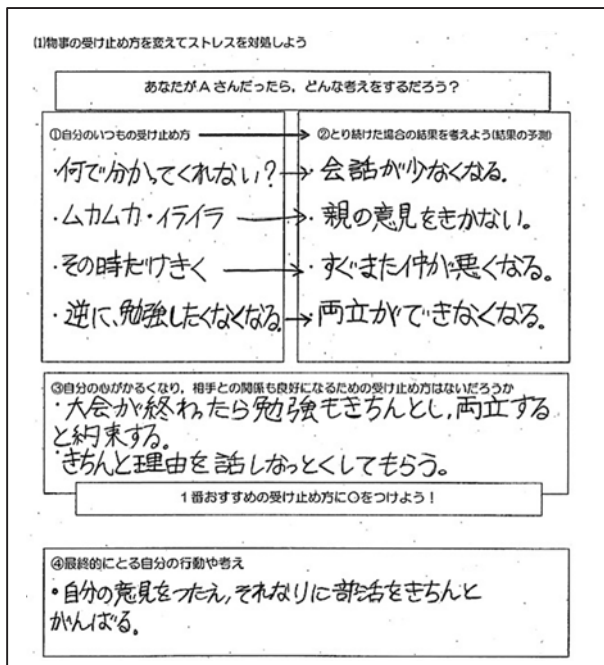 (1)物事の受け止め方を変えてストレスを対処しよう
あなたがAさんだったら，どんな考えをするだろう？
①自分のいつもの受け止め方
・何で分かってくれない？
・ムカムカ・イライラ
・その時だけきく
・逆に、勉強したくなくなる。
②とり続けた場合の結果を考えよう(結果の予測)
・会話が少なくなる。
・親の意見をきかない。
・すぐまた仲が悪くなる。
・両立ができなくなる。
③自分の心がかるくなり，相手との関係も良好になるための受け止め方はないだろうか
・大会が終わったら勉強もきちんとし，両立する
と約束する。
・きちんと理由を話しなっとくしてもらう。
1番おすすめの受け止め方に○をつけよう！
④最終的にとる自分の行動や考え
・自分の意見をつたえ，それなりに部活をきちんと
がんばる。